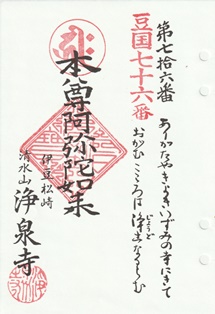 第七拾六番
豆国七十六番
ありがたやきよきいずみの寺にきて
おがむこゝろは浄土なるらむ
じょうど
本尊阿弥陀如来
伊豆松崎
清水山
浄泉寺